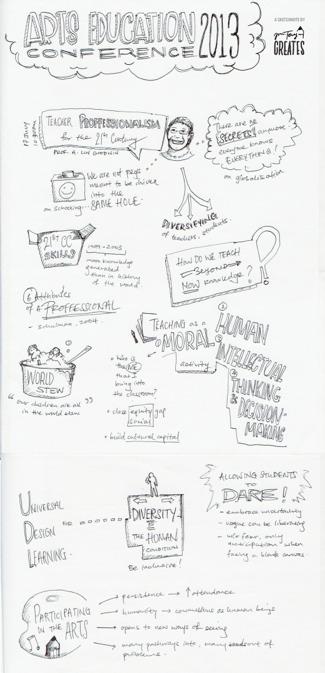 ARTS EDUCATION
CONFERENCE 2013
A SKETCHNOTE BY
CREATES
TEACHER PROFFESSIONALISM
for the 21st Century
PROF. A. LIN GOODWIN
There are no
SECRETS! anymore
everyone knows
EVERYTHING!
on globalisation
We are not pegs
meant to be driven
into the
on schooling... SAME HOLE.
DIVERSIFYING
of teachers, students.
21ST CC
SKILLS
1999 - 2003
more knowledge
generated
than in history
of the world
HOW DO WE TEACH
BEYOND
NOW knowledge?
6 Attributes
of a PROFFESSIONAL
- schulman, 2004
TEACHING as a
MORAL
activity
① HUMAN
② INTELLECTUAL
③ THINKING &
DECISION-
MAKING
WORLD
STEW
" our children are all "
in the world stew
• who is
the ME
that I
bring into
the classroom?
• close equity gap
social
• build cultural capital
UNIVERSAL
DESIGN FOR
LEARNING.
DIVERSITY
IS
THE HUMAN
CONDITION
Be inclusive!
ALLOWING STUDENTS
TO
DARE!
- embrace uncertainty
- vague can be liberating
- we fear, only
anticipation when
facing a blank canvas.
PARTICIPATING
IN THE ARTS
→ persistence → ↑ attendance
→ humanity → consciousness as human beings
→ opens to new ways of seeing
→ many pathways into, many out of
problems.